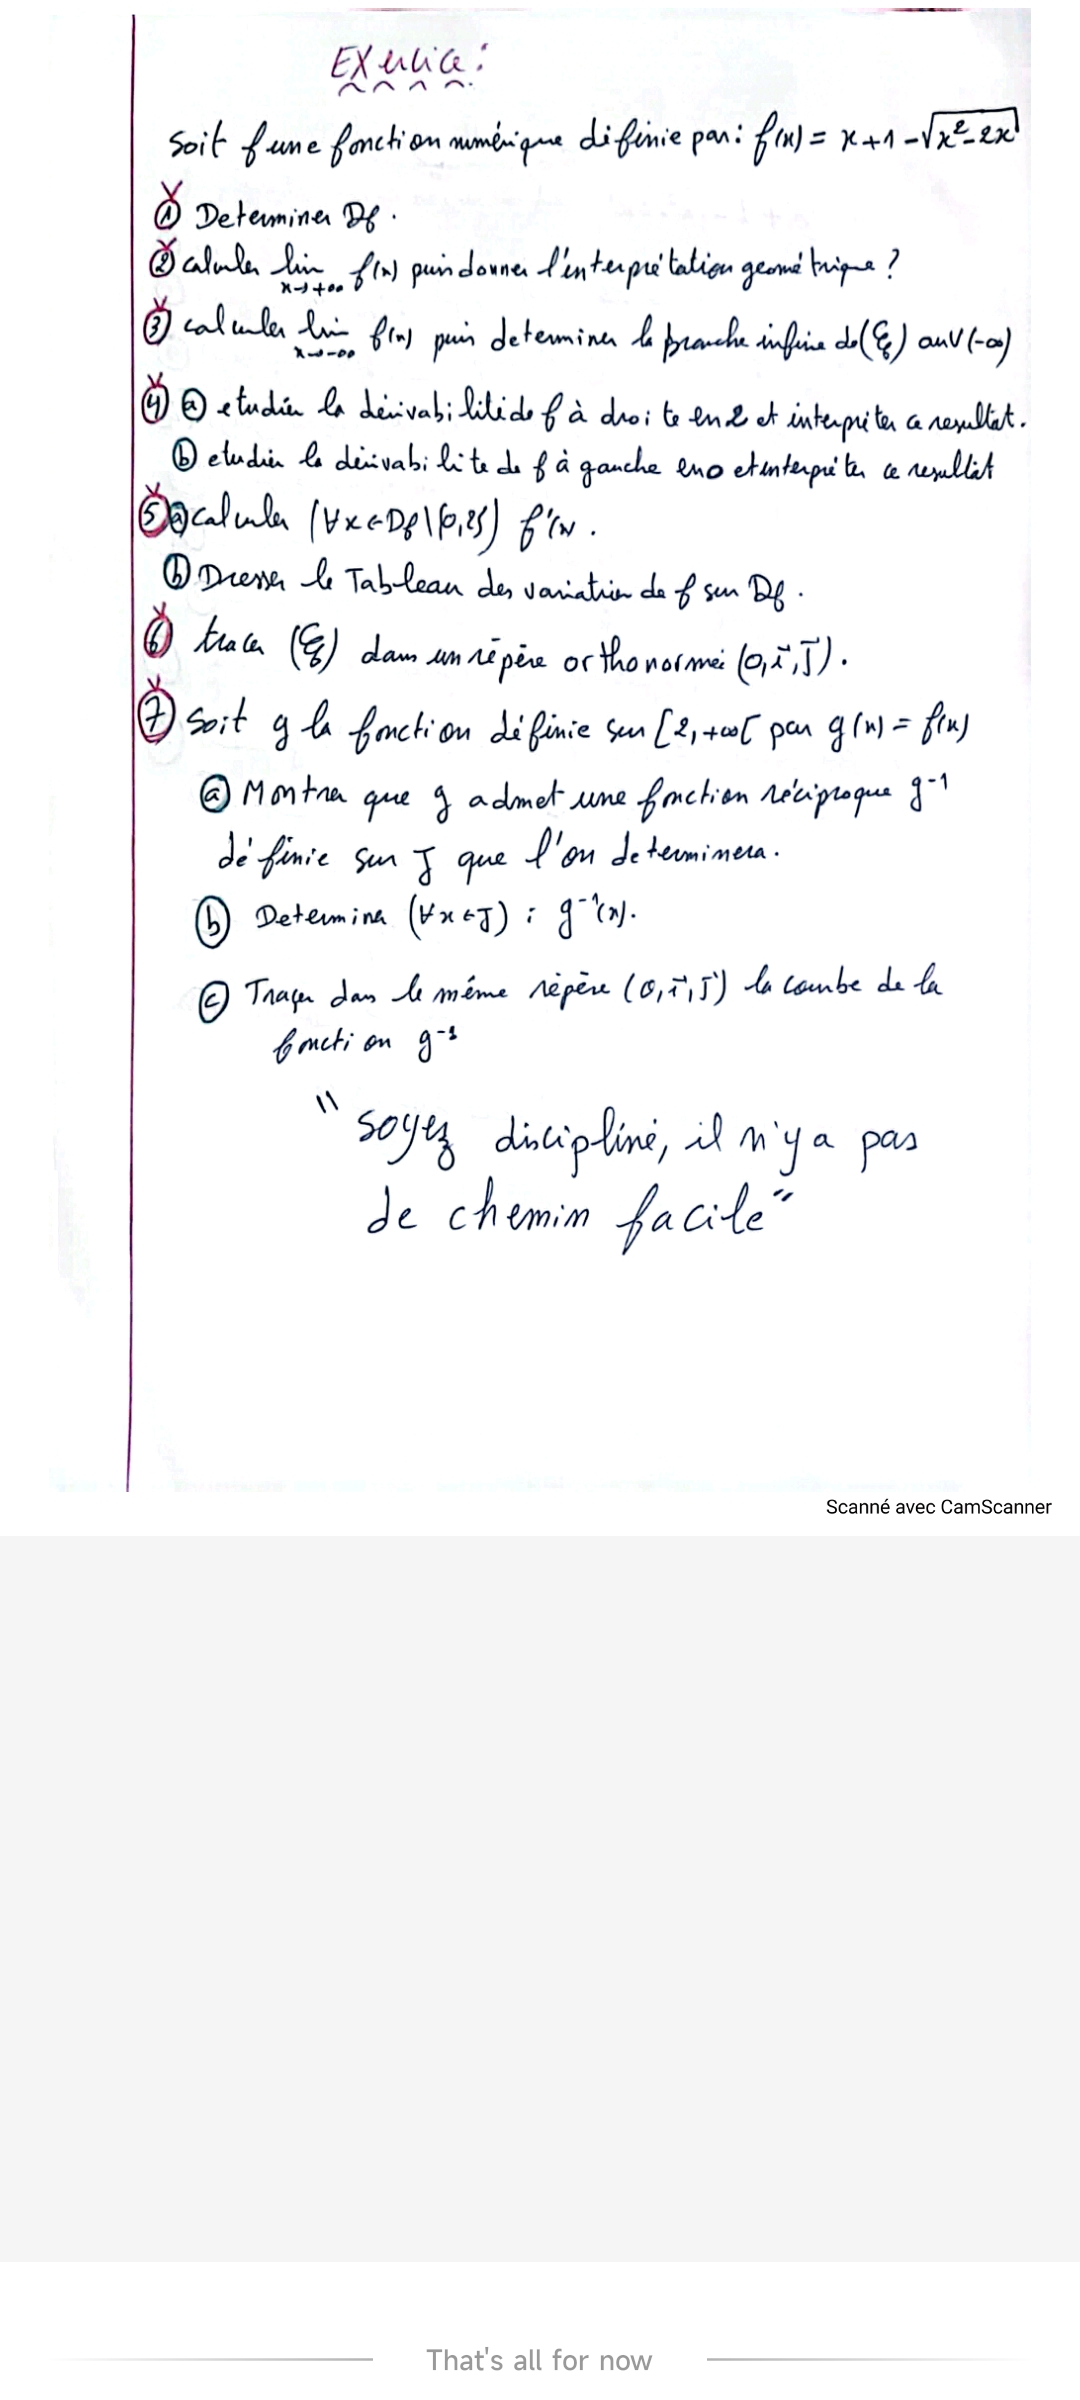 Exercice :
Soit f une fonction numérique définie par : f(x) = x+1-√x²-2x
① Determiner Df.
② calculer lim x→+∞ f(x) puis donner l'interprétation geométrique ?
③ calculer lim x→-∞ f(x) puis determiner la branche infinie de (Cf) au V(-∞)
④ ⓐ etudier la dérivabilité de f à droite en 2 et interpréter ce resultat.
ⓑ etudier la dérivabilite de f à gauche en 0 et interpréter ce resultat
⑤ ⓐ calculer (∀x∈Df\{0,2}) f'(x).
ⓑ Dresser le Tableau des variation de f sur Df.
⑥ tracer (Cf) dans un répère orthonormé (0,i⃗,j⃗).
⑦ Soit g la fonction définie sur [2,+∞[ par g(x) = f(x)
ⓐ Montrer que g admet une fonction réciproque g⁻¹
définie sur J que l'on determinera.
ⓑ Determiner (∀x∈J) : g⁻¹(x).
ⓒ Traçer dans le même répère (0,i⃗,j⃗) la courbe de la
fonction g⁻¹
"soyez discipliné, il n'y a pas
de chemin facile"
Scanné avec CamScanner
That's all for now